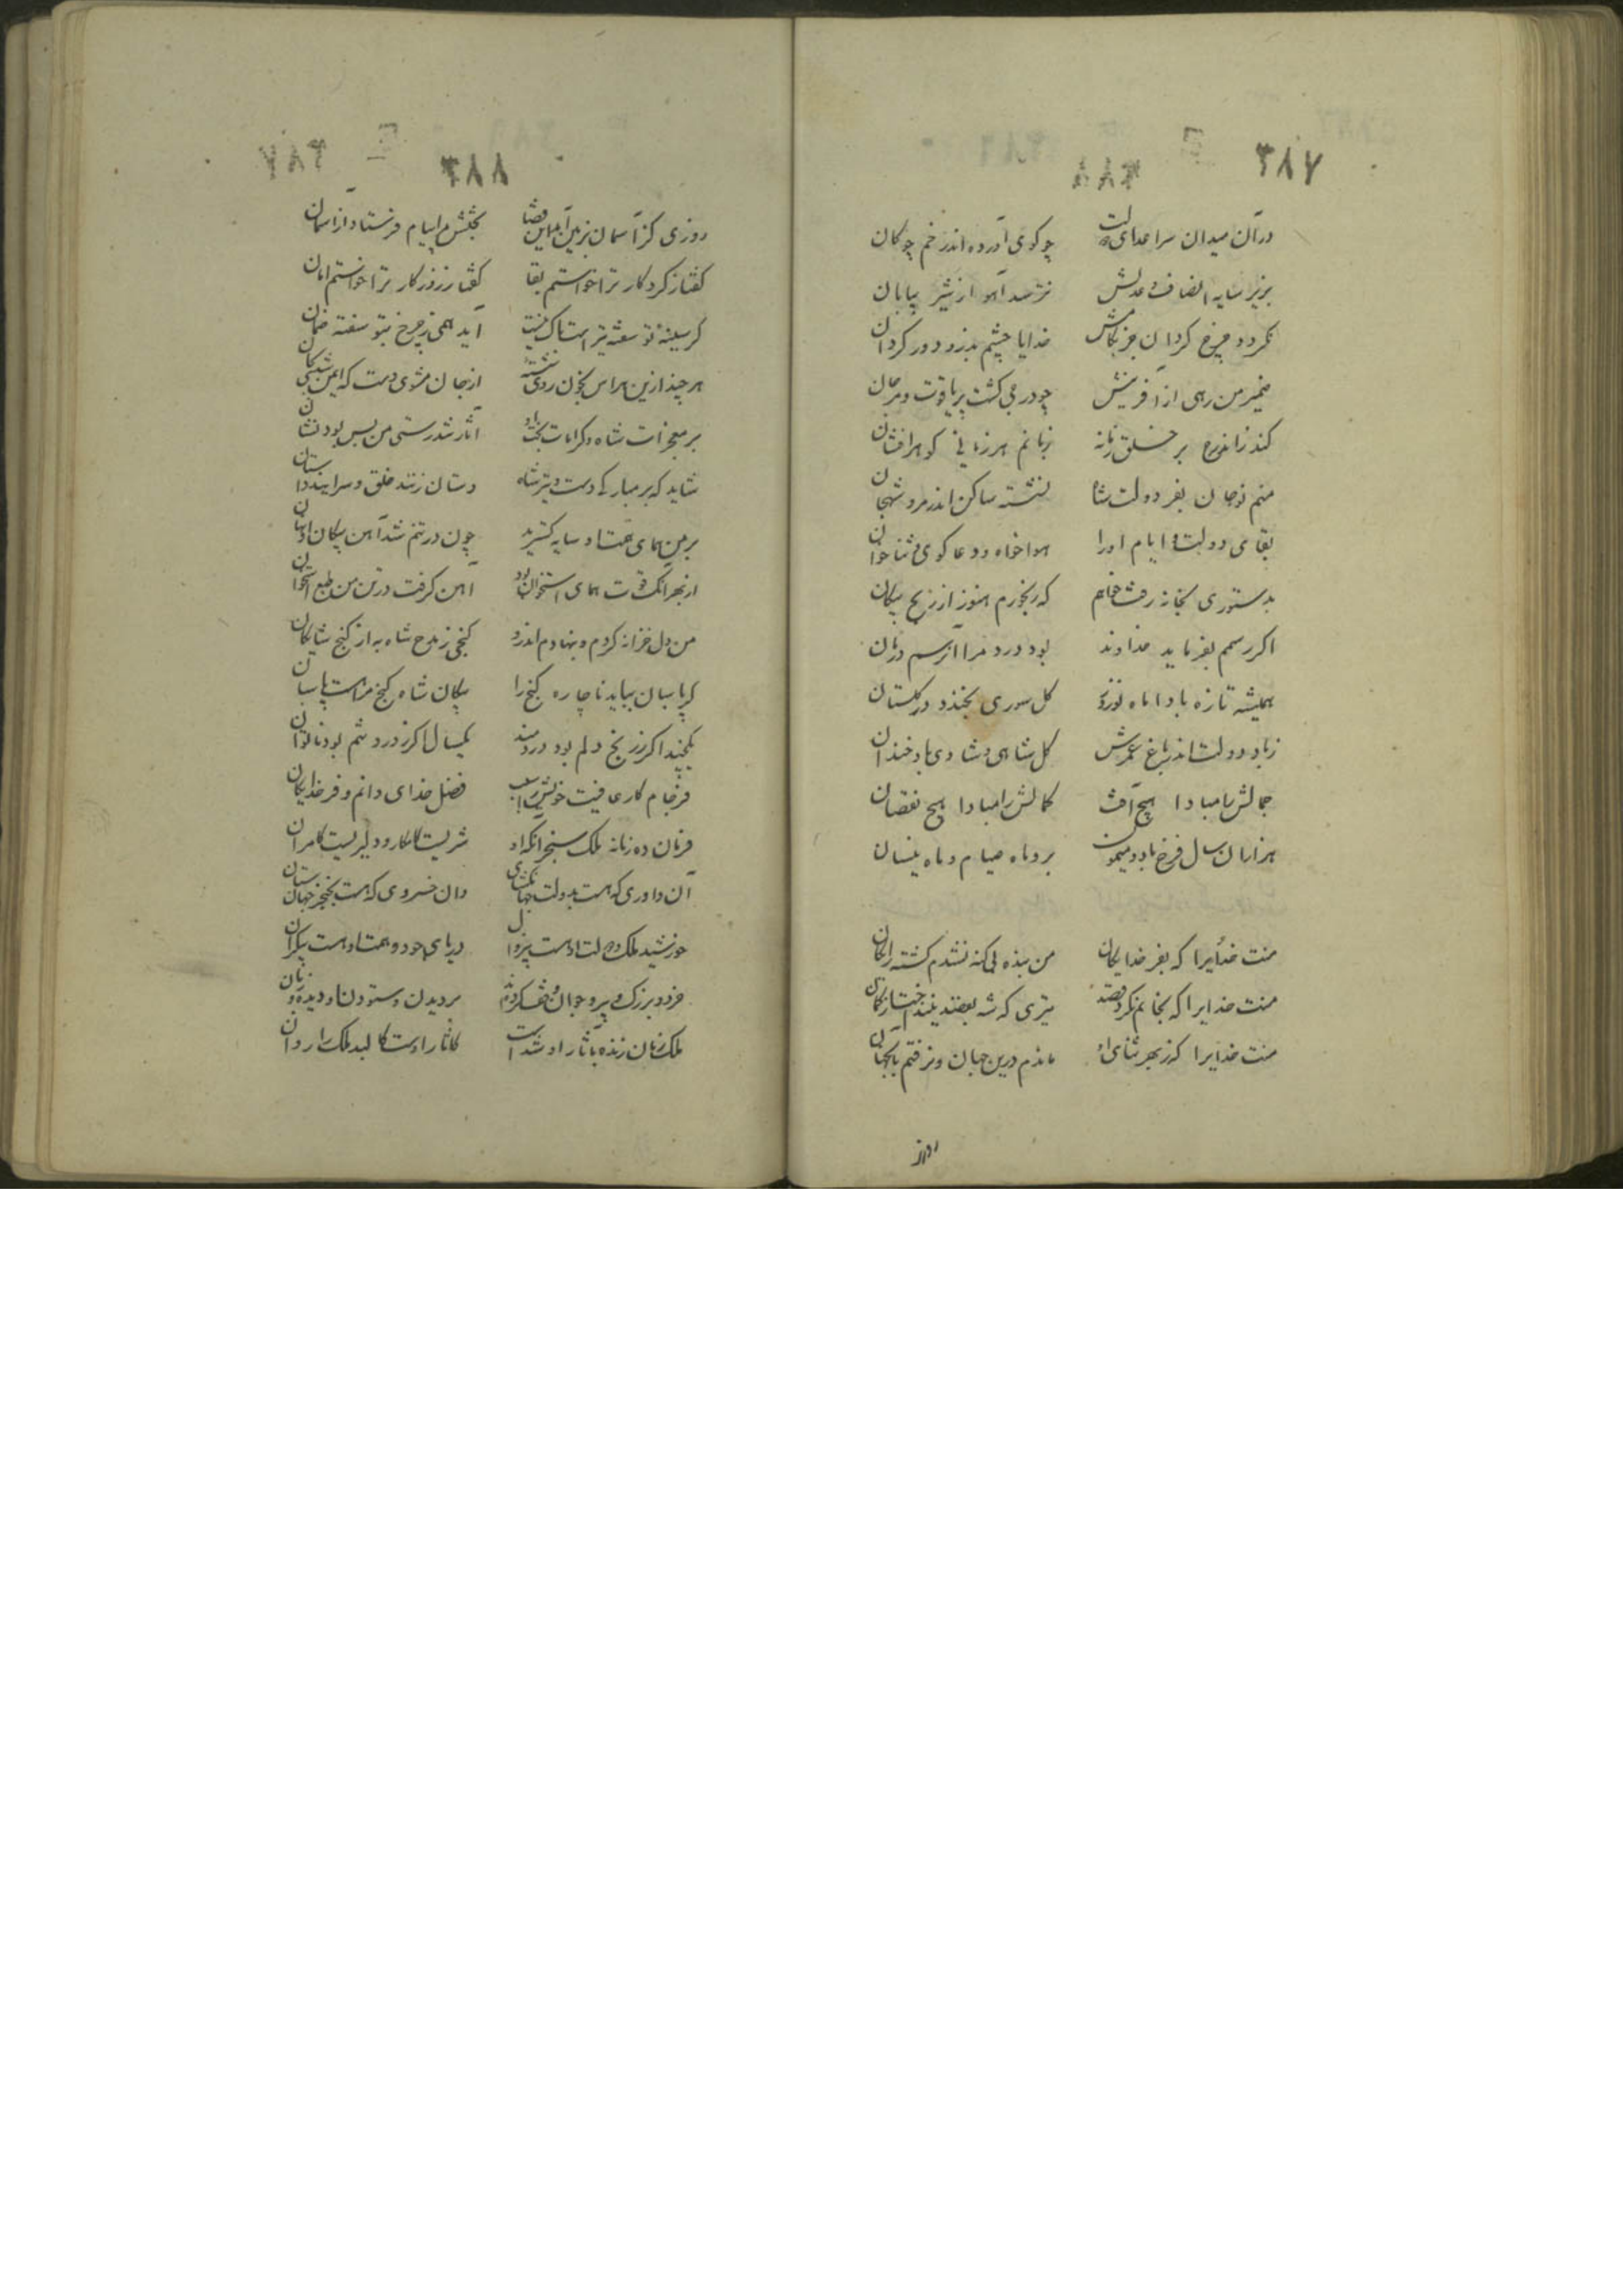 ۳۸۷
در آن میدان سر اعدای دولت چو کوی آورده اندر خم چوکان
بزیر سایه انصاف و عدلش نترسد آهو از شیر بیابان
نکردد چرخ کردان جز بکامش خدایا چشم بد زو دور کردان
ضمیر من رهی از آفرینش چو درجی کشت پر یاقوت و مرجان
کند بر خلق زمانه زبانم هر زمانی کوهرافشان
منم نوجان بفر دولت شاه نشسته ساکن اندر مرو شهجان
بقای دولت و ایام او را هواخواه و دعا کوی و ثناخوان
بدستوری بخانه رفت خواهم که رنجورم هنوز از رنج پیکان
اکر رسمم بفرماید خداوند بود درد مرا آن رسم درمان
همیشه تازه بادا ماه نوروز کل سوری بخندد در کلستان
ز باد دولت اندر باغ عمرش کل شاهی و شادی باد خندان
جمالش را مبادا هیچ آفت کمالش را مبادا هیچ نقصان
هزاران سال فرخ باد و میمون برو ماه صیام و ماه نیسان
منت خدایرا که بفر خدایکان من بنده بی کنه نشدم کشته رایکان
منت خدایرا که بجانم نکرد قصد تیری که شه بقصد نینداخت از کمان
منت خدایرا که ز بهر ثنای او ماندم درین جهان و نرفتم بآنجهان
روزی
۳۸۸
روزی کز آسمان بزمین آمد این قضا بخشش مرا پیام فرستاد از آسمان
کفتا ز کردکار ترا خواستم بقا کفتا ز روزکار ترا خواستم امان
کر سینهٔ تو سفته تیر است باک نیست آید همی ز چرخ بتو سفته ضمان
هر چند ازین هراس بخون روی شسته از جان مشوی دست که ایمن شدی بجان
بر معجزات شاه و کرامات بخت او آثار تندرستی من بس بود نشان
شاید که بر مبارکی دست و تیر شاه دستان زنند خلق و سرایند داستان
بر من همای همت او سایه کسترید چون در تنم شد آهن پیکان او نهان
از بهر آنک قوت همای استخوان بود آهن کرفت در تن من طبع استخوان
من دل خزانه کردم و بنهادم اندرو کنجی ز مدح شاه به از کنج شایکان
کر پاسبان بباید ناچاره کنج را پیکان شاه کنج مرا هست پاسبان
یکچند اکر ز رنج دلم بود دردمند یکسال اکر ز درد تنم بود ناتوان
فرجام کار عافیت خویش را سبب فضل خدای دانم و فر خدایکان
فرمان ده زمانه ملک سنجر آنک او شیریست کامکار و دلیریست کامران
آن داوری که هست بدولت جهانکشای وان خسروی که هست بخنجر جهانستان
خورشید ملک و دولت او هست بیزوال دریای جود و همت او هست بیکران
خرد و بزرک و پیر و جوان وقف کرده‌اند بر دیدن و ستودن او دیده و زبان
ملک زمان زنده بآثار او شدست کاثار اوست کالبد ملک را روان